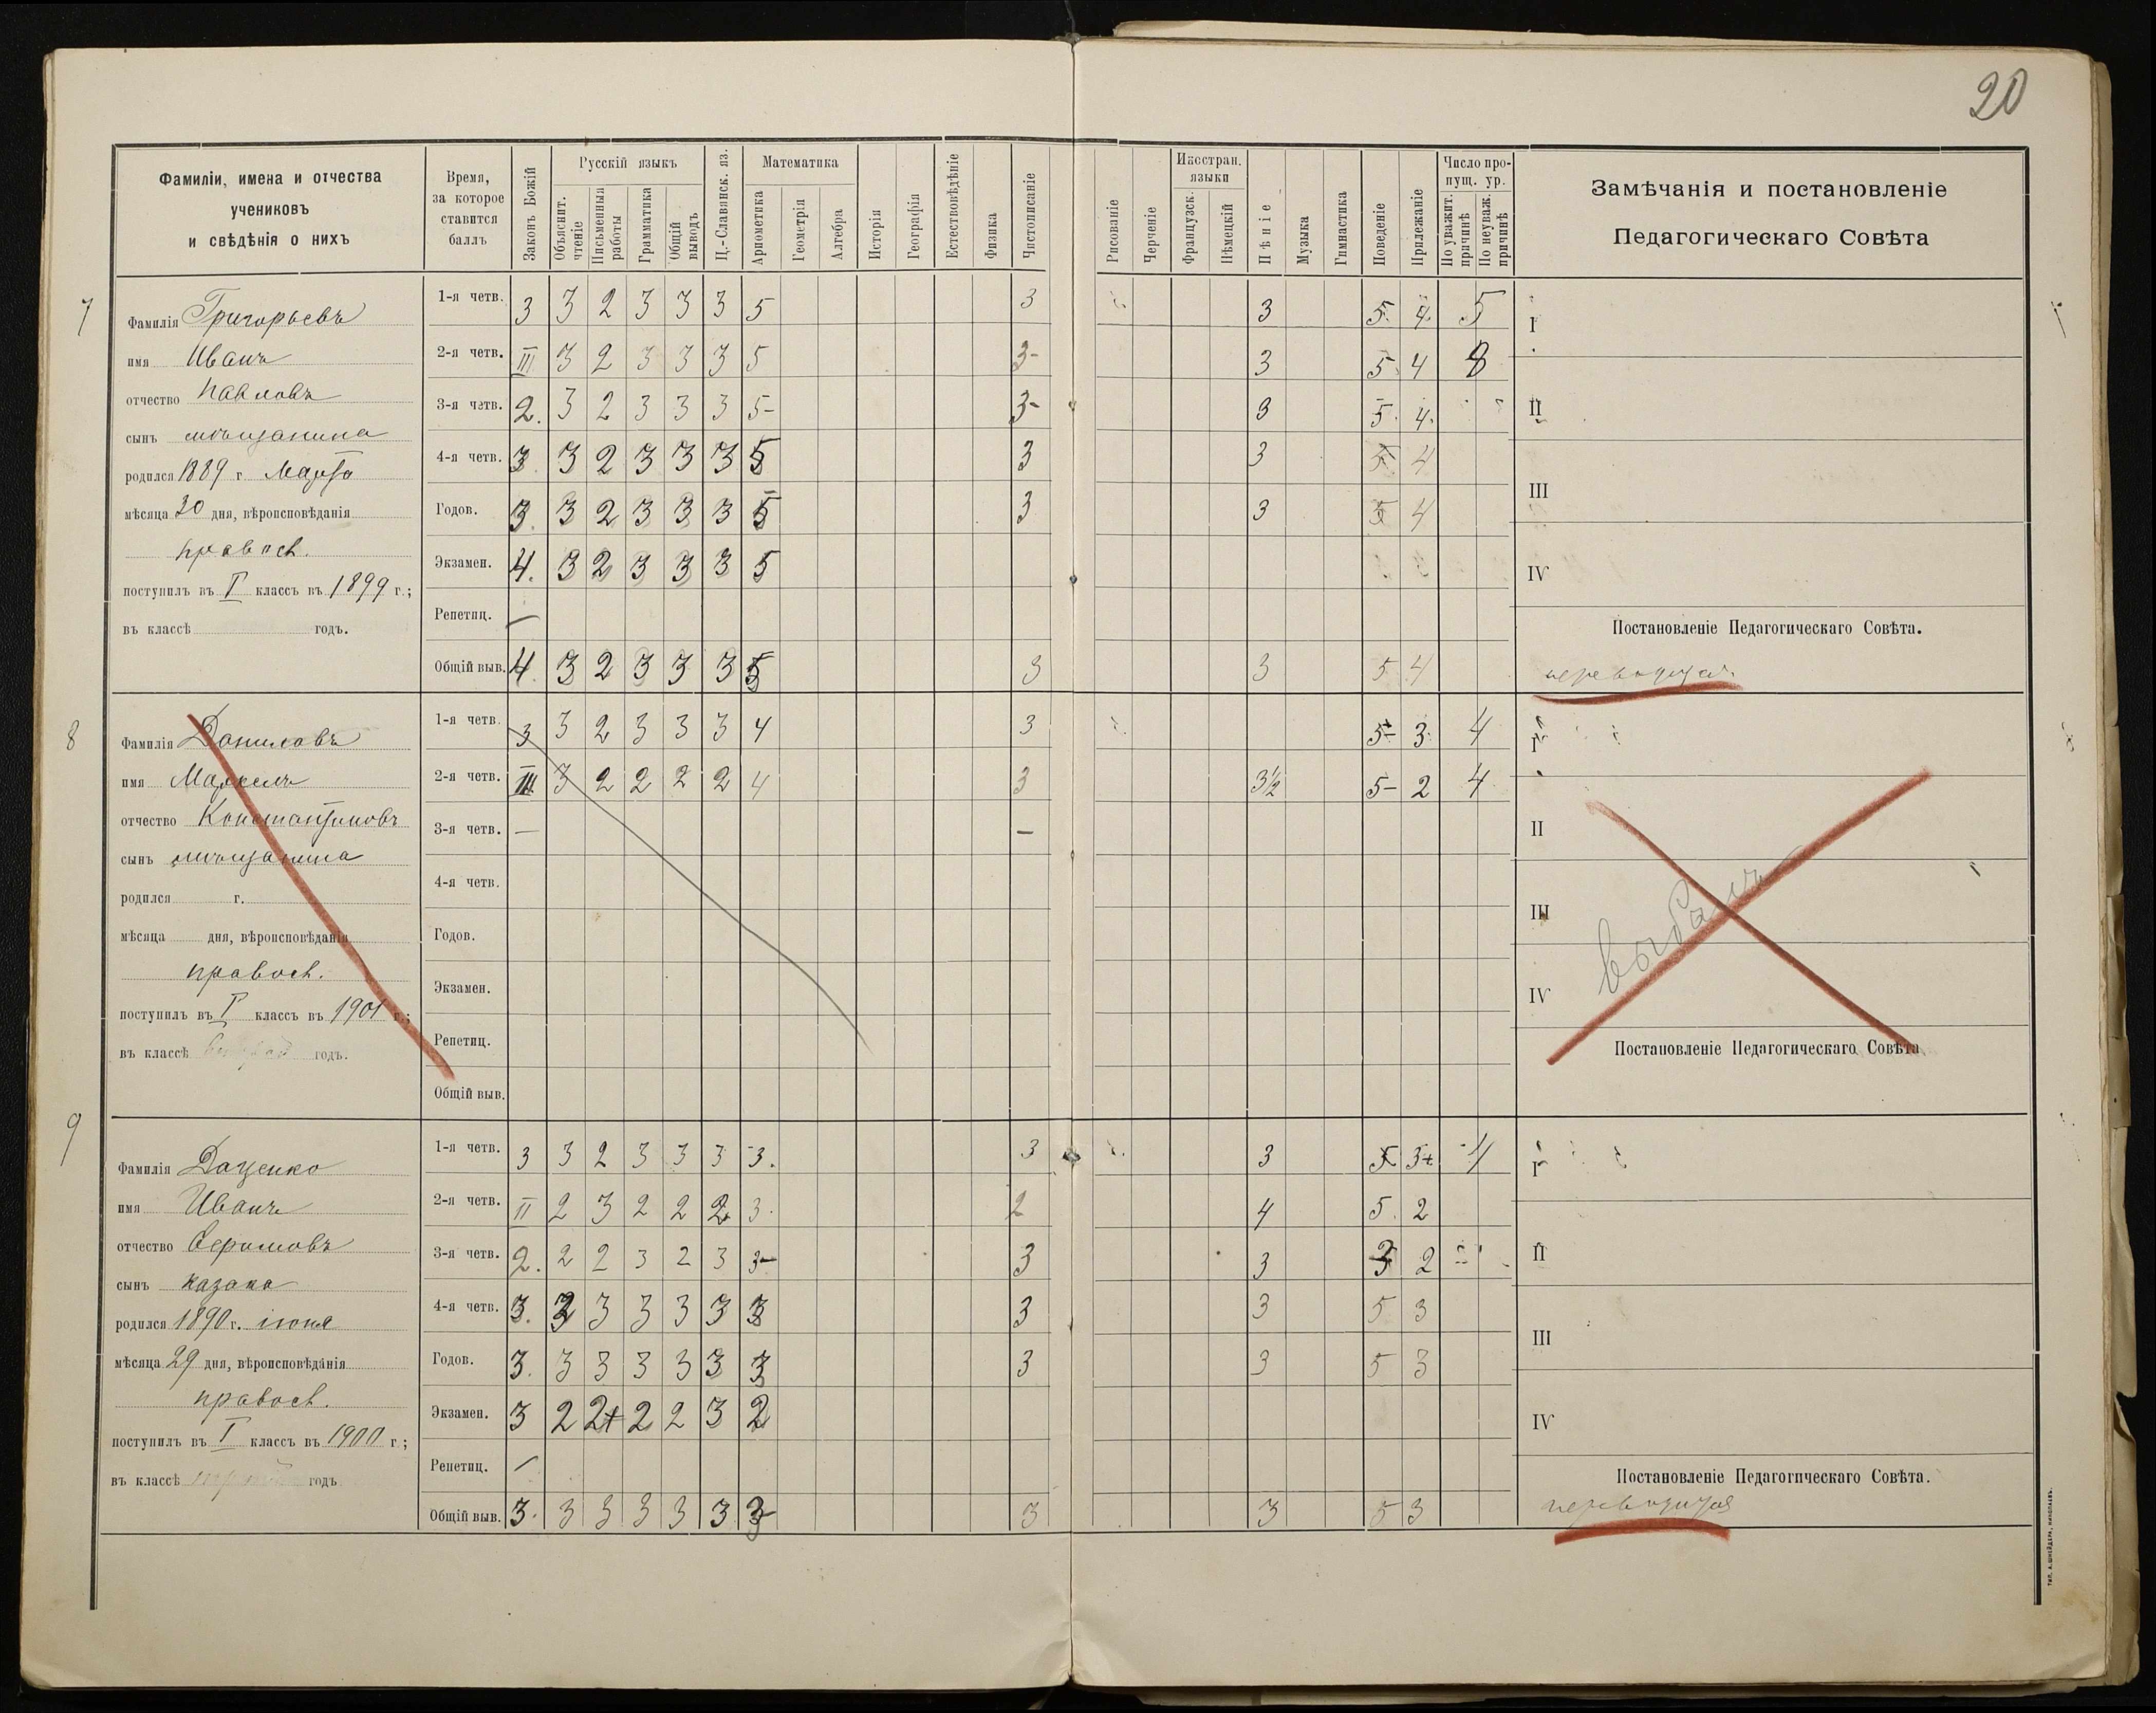 20
Фамиліи, имена и отчества
учениковъ
и свѣдѣнія о нихъ
Время,
за которое
ставится
баллъ
Законъ Божій
Русскій языкъ
Объяснит. чтеніе
Письменныя работы
Грамматика
Общій выводъ
Ц.-Славянск. яз.
Математика
Ариѳметика
Геометрія
Алгебра
Исторія
Географія
Естествовѣдѣніе
Физика
Чистописаніе
Рисованіе
Черченіе
Иностран. языки
Французск.
Нѣмецкій
Пѣніе
Музыка
Гимнастика
Поведеніе
Прилежаніе
Число пропущ. ур.
По уважит. причинѣ
По неуваж. причинѣ
Замѣчанія и постановленіе
Педагогическаго Совѣта
7
Фамилія Григорьевъ
имя Иванъ
отчество Павловъ
сынъ мѣщанина
родился 1889 г. Марта
мѣсяца 30 дня, вѣроисповѣданія
правосл.
поступилъ въ I классъ въ 1899 г.;
въ классѣ годъ.
1-я четв. 3 3 2 3 3 3 5 3 3 5 4 5
2-я четв. III 3 2 3 3 3 5 3- 3 5 4 8
3-я четв. 2. 3 2 3 3 3 5- 3- 3 5. 4.
4-я четв. 3. 3 2 3 3 3 5 3 3 5 4
Годов. 3. 3 2 3 3 3 5 3 3 5 4
Экзамен. 4. 3 2 3 3 3 5
Репетиц. —
Общій выв. 4. 3 2 3 3 3 5 3 3 5 4
I
II
III
IV
Постановленіе Педагогическаго Совѣта.
переводится
8
Фамилія Даниловъ
имя Маркелъ
отчество Константиновъ
сынъ мѣщанина
родился г.
мѣсяца дня, вѣроисповѣданія
правосл.
поступилъ въ I классъ въ 1901 г.;
въ классѣ годъ.
1-я четв. 3 3 2 3 3 3 4 3 5- 3 4
2-я четв. III 3 2 2 2 2 4 3 3½ 5- 2 4
3-я четв. — —
4-я четв.
Годов.
Экзамен.
Репетиц.
Общій выв.
I
II
III
IV
выбылъ
Постановленіе Педагогическаго Совѣта
9
Фамилія Даценко
имя Иванъ
отчество Ефимовъ
сынъ казака
родился 1890 г. іюня
мѣсяца 29 дня, вѣроисповѣданія
правосл.
поступилъ въ I классъ въ 1900 г.;
въ классѣ годъ
1-я четв. 3 3 2 3 3 3 3. 3 3 5 3+ 4
2-я четв. II 2 3 2 2 2 3. 2 4 5. 2
3-я четв. 2. 2 2 3 2 3 3- 3 3 3 2
4-я четв. 3. 3 3 3 3 3 3 3 3 5 3
Годов. 3. 3 3 3 3 3 3 3 3 5 3
Экзамен. 3 2 2+ 2 2 3 2
Репетиц. —
Общій выв. 3. 3 3 3 3 3 3 3 3 5 3
I
II
III
IV
Постановленіе Педагогическаго Совѣта.
переводится
ТИП. А. ШНЕЙДЕРА, НИКОЛАЕВЪ.